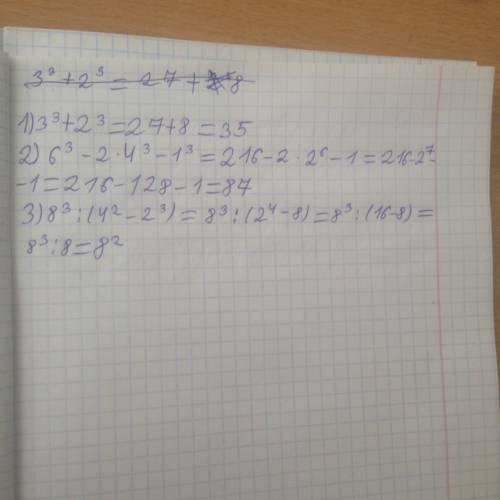 3³+2³=27+8
1)3³+2³=27+8=35
2) 6³-2·4³-1³=216-2·2⁶-1=216-2⁷-
-1=216-128-1=87
3)8³:(4²-2³)=8³:(2⁴-8)=8³:(16-8)=
8³:8=8²